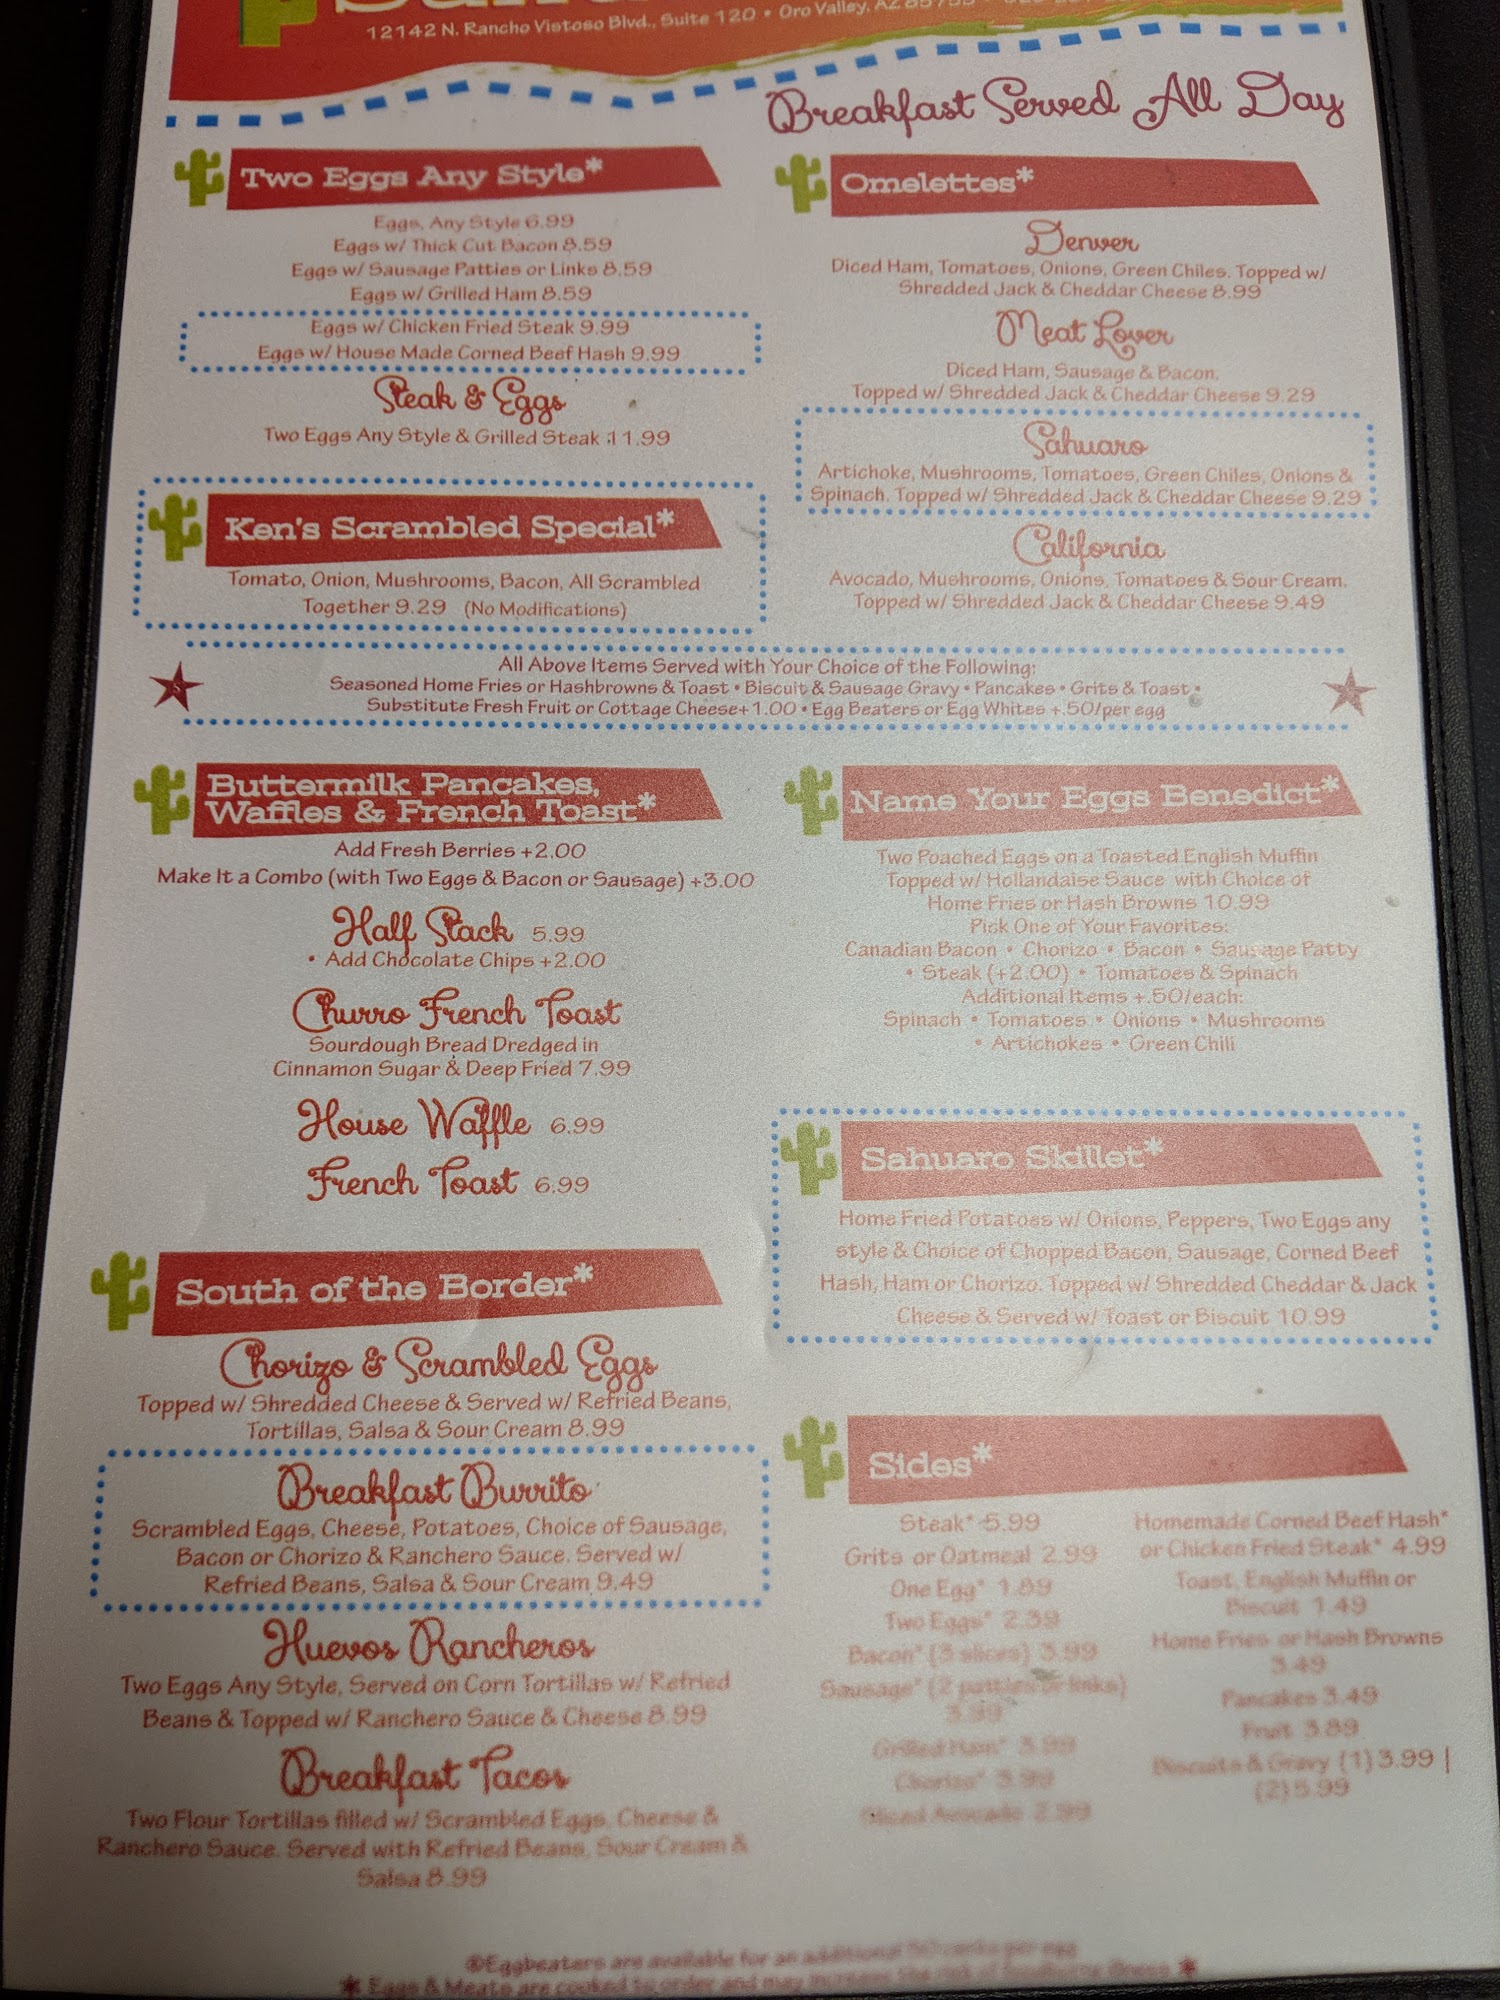 12142 N. Rancho Vistoso Blvd., Suite 120 • Oro Valley, AZ
Breakfast Served All Day
Two Eggs Any Style*
Eggs, Any Style 6.99
Eggs w/ Thick Cut Bacon 8.59
Eggs w/ Sausage Patties or Links 8.59
Eggs w/ Grilled Ham 8.59
Eggs w/ Chicken Fried Steak 9.99
Eggs w/ House Made Corned Beef Hash 9.99
Steak & Eggs
Two Eggs Any Style & Grilled Steak 11.99
Ken's Scrambled Special*
Tomato, Onion, Mushrooms, Bacon, All Scrambled
Together 9.29 (No Modifications)
Omelettes*
Denver
Diced Ham, Tomatoes, Onions, Green Chiles. Topped w/
Shredded Jack & Cheddar Cheese 8.99
Meat Lover
Diced Ham, Sausage & Bacon.
Topped w/ Shredded Jack & Cheddar Cheese 9.29
Sahuaro
Artichoke, Mushrooms, Tomatoes, Green Chiles, Onions &
Spinach. Topped w/ Shredded Jack & Cheddar Cheese 9.29
California
Avocado, Mushrooms, Onions, Tomatoes & Sour Cream.
Topped w/ Shredded Jack & Cheddar Cheese 9.49
All Above Items Served with Your Choice of the Following:
Seasoned Home Fries or Hashbrowns & Toast • Biscuit & Sausage Gravy • Pancakes • Grits & Toast •
Substitute Fresh Fruit or Cottage Cheese+1.00 • Egg Beaters or Egg Whites +.50/per egg
Buttermilk Pancakes,
Waffles & French Toast*
Add Fresh Berries +2.00
Make It a Combo (with Two Eggs & Bacon or Sausage) +3.00
Half Stack 5.99
• Add Chocolate Chips +2.00
Churro French Toast
Sourdough Bread Dredged in
Cinnamon Sugar & Deep Fried 7.99
House Waffle 6.99
French Toast 6.99
South of the Border*
Chorizo & Scrambled Eggs
Topped w/ Shredded Cheese & Served w/ Refried Beans,
Tortillas, Salsa & Sour Cream 8.99
Breakfast Burrito
Scrambled Eggs, Cheese, Potatoes, Choice of Sausage,
Bacon or Chorizo & Ranchero Sauce. Served w/
Refried Beans, Salsa & Sour Cream 9.49
Huevos Rancheros
Two Eggs Any Style, Served on Corn Tortillas w/ Refried
Beans & Topped w/ Ranchero Sauce & Cheese 8.99
Breakfast Tacos
Two Flour Tortillas filled w/ Scrambled Eggs, Cheese &
Ranchero Sauce. Served with Refried Beans, Sour Cream &
Salsa 8.99
Name Your Eggs Benedict*
Two Poached Eggs on a Toasted English Muffin
Topped w/ Hollandaise Sauce with Choice of
Home Fries or Hash Browns 10.99
Pick One of Your Favorites:
Canadian Bacon • Chorizo • Bacon • Sausage Patty
• Steak (+2.00) • Tomatoes & Spinach
Additional Items +.50/each:
Spinach • Tomatoes • Onions • Mushrooms
• Artichokes • Green Chili
Sahuaro Skillet*
Home Fried Potatoes w/ Onions, Peppers, Two Eggs any
style & Choice of Chopped Bacon, Sausage, Corned Beef
Hash, Ham or Chorizo. Topped w/ Shredded Cheddar & Jack
Cheese & Served w/ Toast or Biscuit 10.99
Sides*
Steak* 5.99
Grits or Oatmeal 2.99
One Egg* 1.89
Two Eggs* 2.39
Bacon* (3 slices) 3.99
Sausage* (2 patties or links)
3.99
Grilled Ham* 3.99
Chorizo* 3.99
Sliced Avocado 2.99
Homemade Corned Beef Hash*
or Chicken Fried Steak* 4.99
Toast, English Muffin or
Biscuit 1.49
Home Fries or Hash Browns
3.49
Pancakes 3.49
Fruit 3.89
Biscuits & Gravy (1) 3.99 |
(2) 5.99
Eggbeaters are available for an additional
Eggs & Meats are cooked to order and may increase the risk of